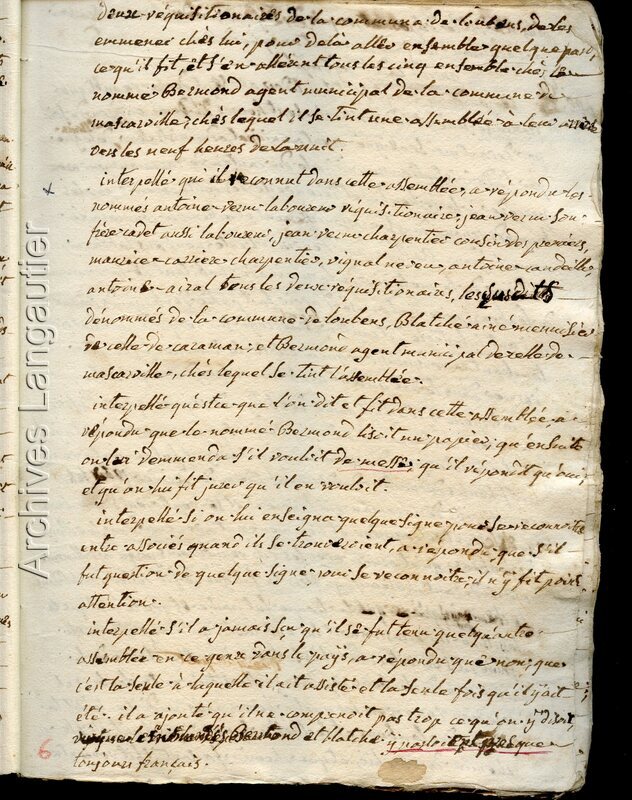 deux réquisitionaires de la commune de loubens, de les
emmener chés lui, pour delà aller ensemble quelque part,
ce qu'il fit, et s'en allerent tous les cinq ensemble chés le
nommé Bermond agent municipal de la commune de
mascarville, chés lequel il se tint une assemblée à leur arrivée
vers les neuf heures de la nuit.
interpellé qui il reconnut dans cette assemblée, a répondu les
nommés antoine verm laboureur réquisitionaire, jean verm son
frère cadet aussi laboureur, jean verm charpentier cousin des premiers,
maurice carrière charpentier, vignal neveu, antoine
antoine airal tous les deux réquisitionairs, les susdits
dénommés de la commune de loubens, Blatché ainé menuisier
de celle de caraman, et Bermond agent municipal de celle de
mascarville, chés lequel se tint l'assemblée.
interpellé qu'estce que l'on dit et fit dans cette assemblée, a
répondu que le nommé Bermond lisoit un papier, qu'ensuite
on lui demmenda s'il vouloit de messe, qu'il répondit qu'oui,
et qu'on lui fit jurer qu'il en vouloit.
interpellé si on lui enseigna quelque signe pour se reconnoitre
entre associés quand ils se trouveroient, a répondu que s'il
fut question de quelque signe pour se reconnoitre, il n'y fit point
attention.
interpellé s'il a jamais sçu qu'il se fut tenu quelqu'autre
assemblée en ce genre dans le païs, a répondu que non, que
c'est la seule à laquelle il ait assisté et la seule fois qu'il y ait
été. il a ajouté qu'il ne comprenoit pas trop ce qu'on y disoit,
Bermond et blatché y parloit presque
toujours français.
6
Archives Langautier